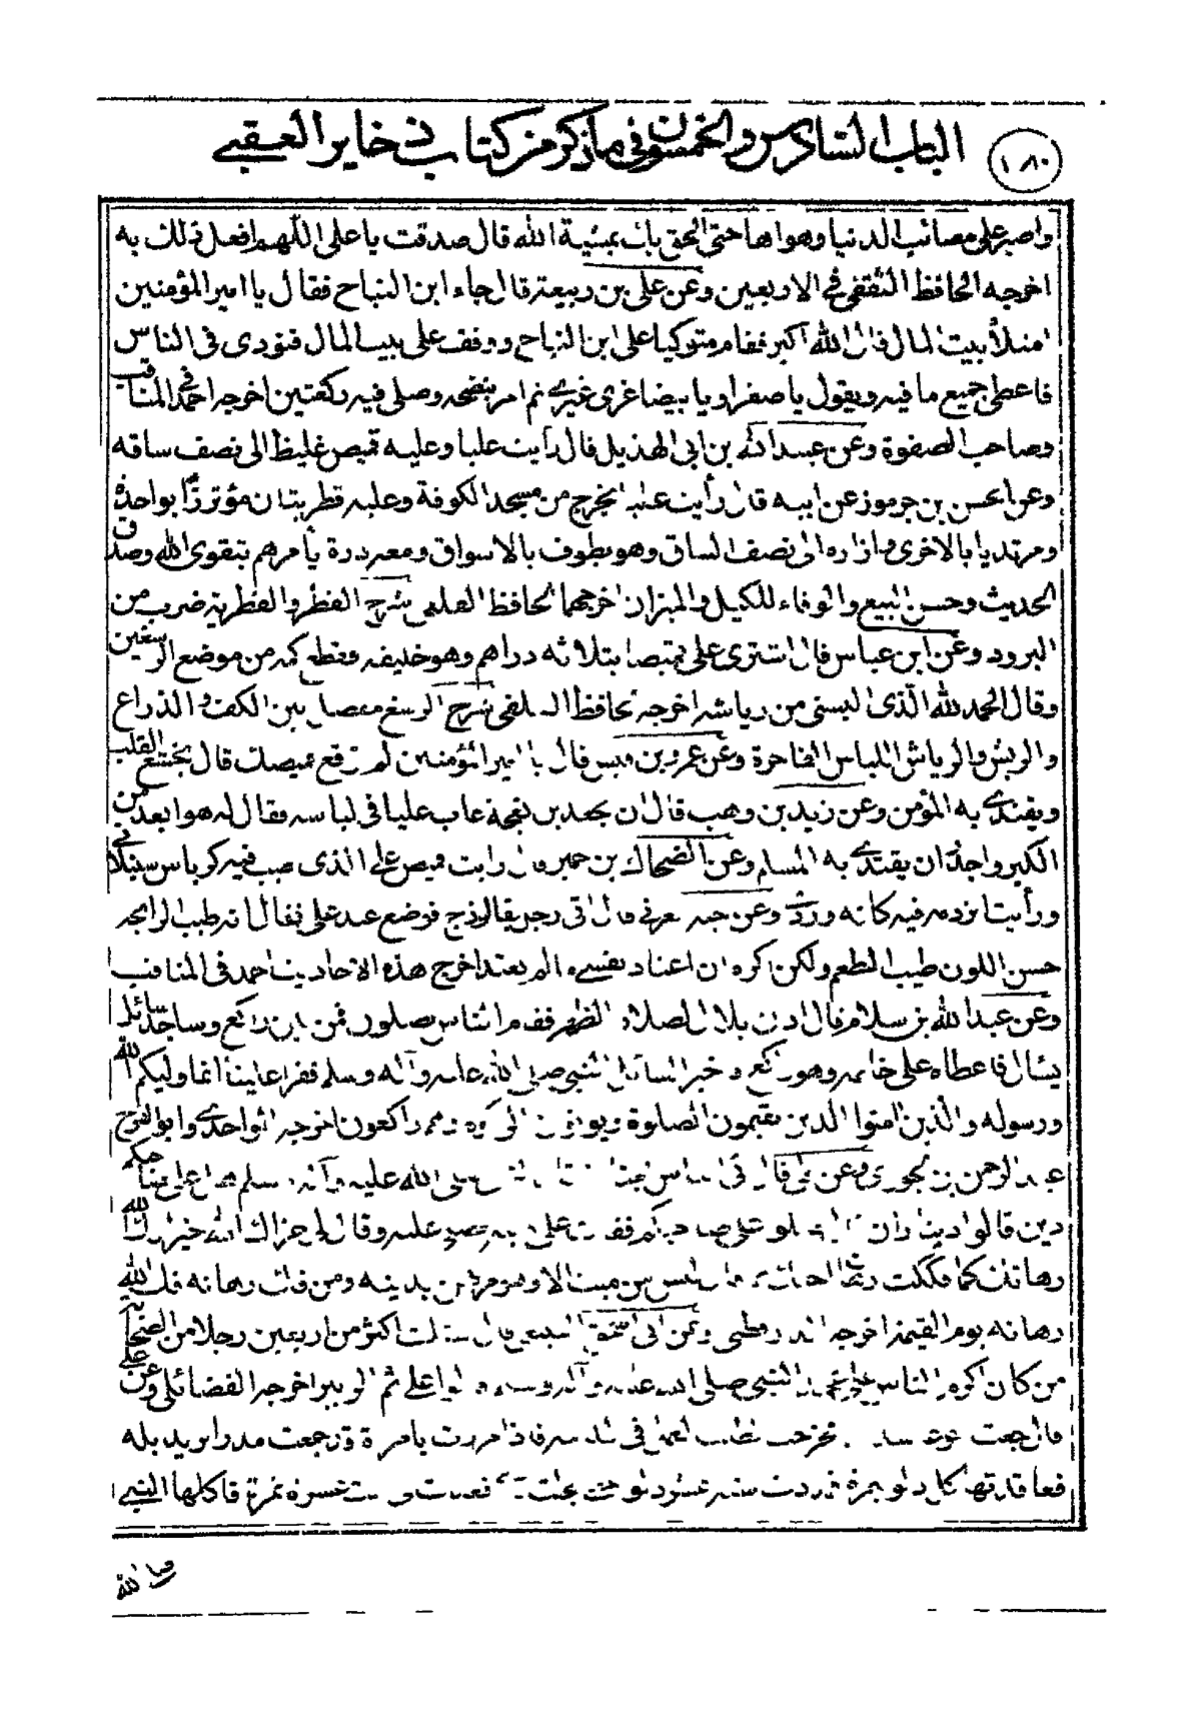 ١٨٠
الباب السادس والخمسون في ما ذكر من كتاب ذخاير العقبى
واصبر على مصائب الدنيا وهواها حتى الحق بك بمشية الله قال صدقت يا على اللهم افعل ذلك به
اخرجه الحافظ الثقفى في الاربعين وعن على بن ربيعة قال جاء ابن النباح فقال يا امير المؤمنين
امتلأ بيت المال قال الله اكبر فقام متوكيا على ابن النباح ووقف على بيت المال فنودى فى الناس
فاعطى جميع ما فيه ويقول يا صفراء ويا بيضاء غرى غيرى ثم امر بنضحه وصلى فيه ركعتين اخرجه احمد في المناقب
وصاحب الصفوة وعن عبد الله بن ابى الهذيل قال رأيت عليا وعليه قميص غليظ الى نصف ساقه
وعن الحسن بن جرموز عن ابيه قال رأيت عليا يخرج من مسجد الكوفة وعليه قطريتان مؤتزرًا بواحدة
ومرتديا بالاخرى وازاره الى نصف الساق وهو يطوف بالاسواق ومعه درة يأمرهم بتقوى الله وصدق
الحديث وحسن البيع والوفاء للكيل والميزان اخرجهما الحافظ القلعى شرح القطر والقطرية ضرب من
البرود وعن ابن عباس قال اشترى على قميصا بثلاثة دراهم وهو خليفة وقطع كمه من موضع الرسغين
وقال الحمد لله الذى البسنى من رياشه اخرجه الحافظ السلفى شرح الرسغ مفصل بين الكف والذراع
والريش والرياش اللباس الفاخرة وعن عمرو بن قيس قال يا امير المؤمنين لم ترقع قميصك قال يخشع القلب
ويقتدى به المؤمن وعن زيد بن وهب قال ان جعد بن نعجة عاب عليا فى لباسه فقال له هو ابعد من
الكبر واجدر ان يقتدى به المسلم وعن الضحاك بن عمير قال رايت قميص على الذى اصيب فيه كرباس سنبلانى
ورأيت اثر دمه فيه كانه وعن حبة العرنى قال اتى رجل بفالوذج فوضع عند على فقال انه طيب الرايحة
حسن اللون طيب الطعم ولكن اكره ان اعتاد نفسى ما لم يعتد اخرج هذه الاحاديث احمد فى المناقب
وعن عبد الله بن سلام قال اذن بلال لصلاة الظهر فقام الناس يصلون فمن بين راكع وساجد وسائل
يسأل فاعطاه على خاتمه وهو راكع فاخبر السائل النبى صلى الله عليه وآله وسلم فقرا علينا انما وليكم الله
ورسوله والذين امنوا الذين يقيمون الصلوة ويؤتون الزكوة وهم راكعون اخرجه الواحدى وابو الفرج
عبد الرحمن بن الجوزى وعن على قال صلى الله عليه وآله وسلم
دين قالوا ديناران على صاحبكم فقال على وقال لى جزاك الله خيرا فك الله
رهانك كما فككت رهان اخيك انه ليس من ميت الا وهو مرتهن بدينه ومن فك رهانه فك الله
رهانه يوم القيمة اخرجه الدارقطنى وعن ابى اسحق السبيعى قال سألت اكثر من اربعين رجلا من الصحابة
من كان اكرم الناس على عهد النبى صلى الله عليه وآله وسلم قالوا على ثم الزبير اخرجه الفضائلى وعن على
قال جعت فخرجت اطلب العمل فى فاذا مررت بامرأة قد جمعت مدرا تريد بله
فعاقدتها كل دلو بتمرة فمددت ستة عشر دلوا حتى ستة عشرة تمرة فاكلها النبى